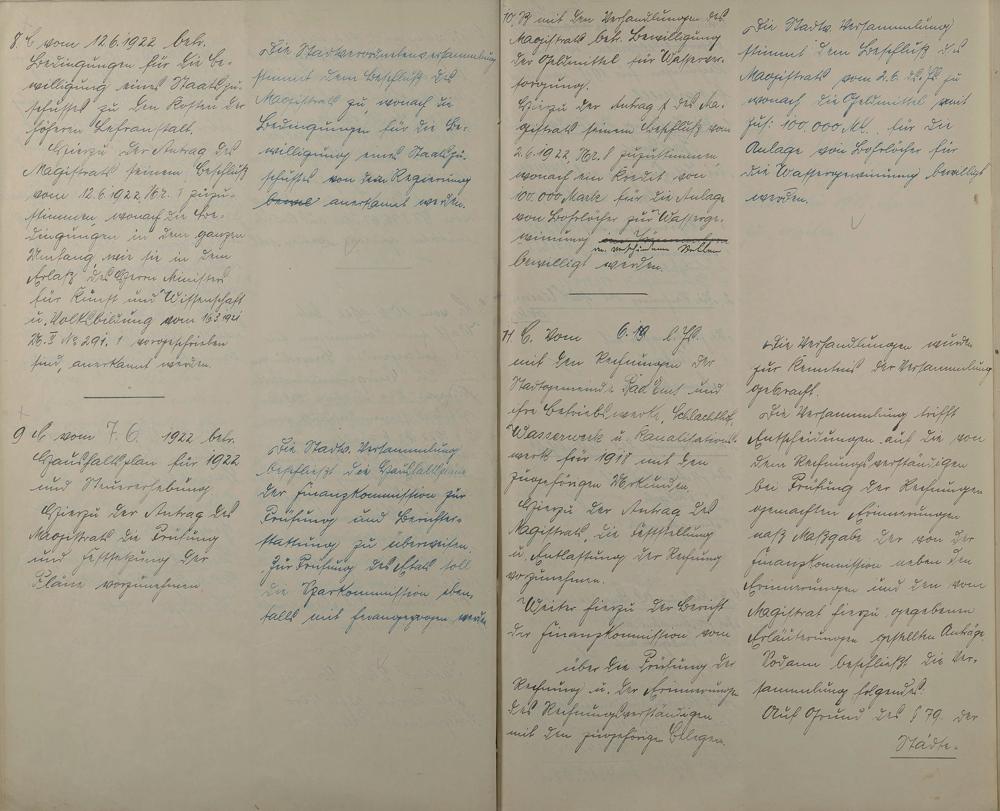 8. C vom 12.6.1922 betr.
Bedingungen für die Be-
willigung eines Staatszu-
schusses zu den Kosten der
höheren Lehranstalt.
Hierzu der Antrag des
Magistrats seinem Beschluß
vom 12.6.1922 Nr. 1 zuzu-
stimmen wonach die Be-
dingungen in dem ganzen
Umfang, wie sie in dem
Erlaß des Herrn Minister
für Kunst und Wissenschaft
u. Volksbildung vom
No 291. 1 vorgeschrieben
sind, anerkannt werden.
Die Stadtverordnetenversammlung
stimmt dem Beschluß des
Magistrats zu, wonach die
Bedingungen für die Be-
willigung eines Staatszu-
schusses von der Regierung
anerkannt werden.
9 C. vom 7.6. 1922 betr.
Haushaltsplan für 1922
und Steuererhebung
Hierzu der Antrag des
Magistrats die Prüfung
und Festsetzung der
Pläne vorzunehmen.
Die Stadtv. Versammlung
beschließt die Haushaltspläne
der Finanzkommission zur
Prüfung und Berichter-
stattung zu überweisen.
Zur Prüfung des Etats soll
die Sparkommission eben-
falls mit herangezogen werden
10. mit den Verhandlungen des
Magistrats betr. Bewilligung
der Geldmittel für Wasserver-
sorgung.
Hierzu der Antrag des Ma-
gistrats seinem Beschluß vom
2.6.1922, Nr. 8 zuzustimmen
wonach ein Kredit von
100.000 Mark für die Anlage
von Bohrlöcher zur Wasserge-
winnung
an verschiedenen Stellen
bewilligt werden.
Die Stadtv. Versammlung
stimmt dem Beschluß des
Magistrats vom 2.6. ds. Js zu
wonach die Geldmittel mit
zus: 100.000 Mk. für die
Anlage von Bohrlöcher für
die Wassergewinnung bewilligt
werden.
11. C. vom 6.19 l. Js.
mit den Rechnungen der
Stadtgemeinde Bad Ems und
ihre Betriebswerke, Schlachthof,
Wasserwerk u. Kanalisations-
werk für 1918 mit den
zugehörigen Urkunden.
Hierzu der Antrag des
Magistrats, die Feststellung
u. Entlastung der Rechnung
vorzunehmen.
Weiter hierzu der Bericht
der Finanzkommission vom
über die Prüfung der
Rechnung u. der Erinnerungen
des Rechnungsverständigen
mit den zugehörige Belegen.
Die Verhandlungen wurden
zur Kenntnis der Versammlung
gebracht.
Die Versammlung trifft
Entscheidungen auf die von
dem Rechnungsverständigen
bei Prüfung der Rechnungen
gemachten Erinnerungen
nach Maßgabe der von der
Finanzkommission neben den
Erinnerungen und den vom
Magistrat hierzu gegebenen
Erläuterungen gestellten Anträge
Sodann beschließt die Ver-
sammlung folgendes.
Auf Grund des § 79. der
Städte-